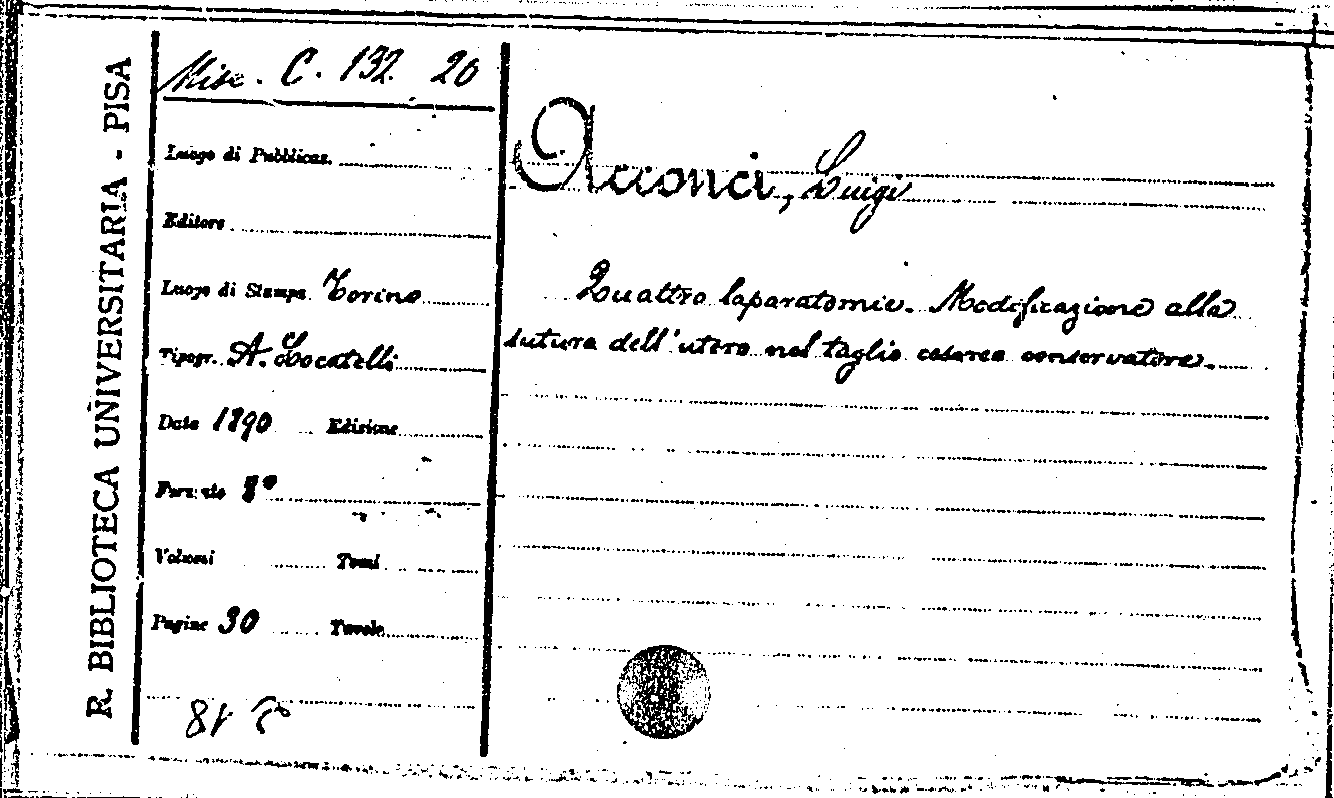 R. BIBLIOTECA UNIVERSITARIA - PISA
Misc. C. 132. 20
Luogo di Pubblicaz.
Editore
Luogo di Stampa Torino
Tipogr. A. Locatelli
Data 1890 Edizione
Formato 8º
Volumi Tomi
Pagine 30 Tavole
Acconci, Luigi
Quattro laparatomie. Modificazione alla
sutura dell'utero nel taglio cesareo conservatore.